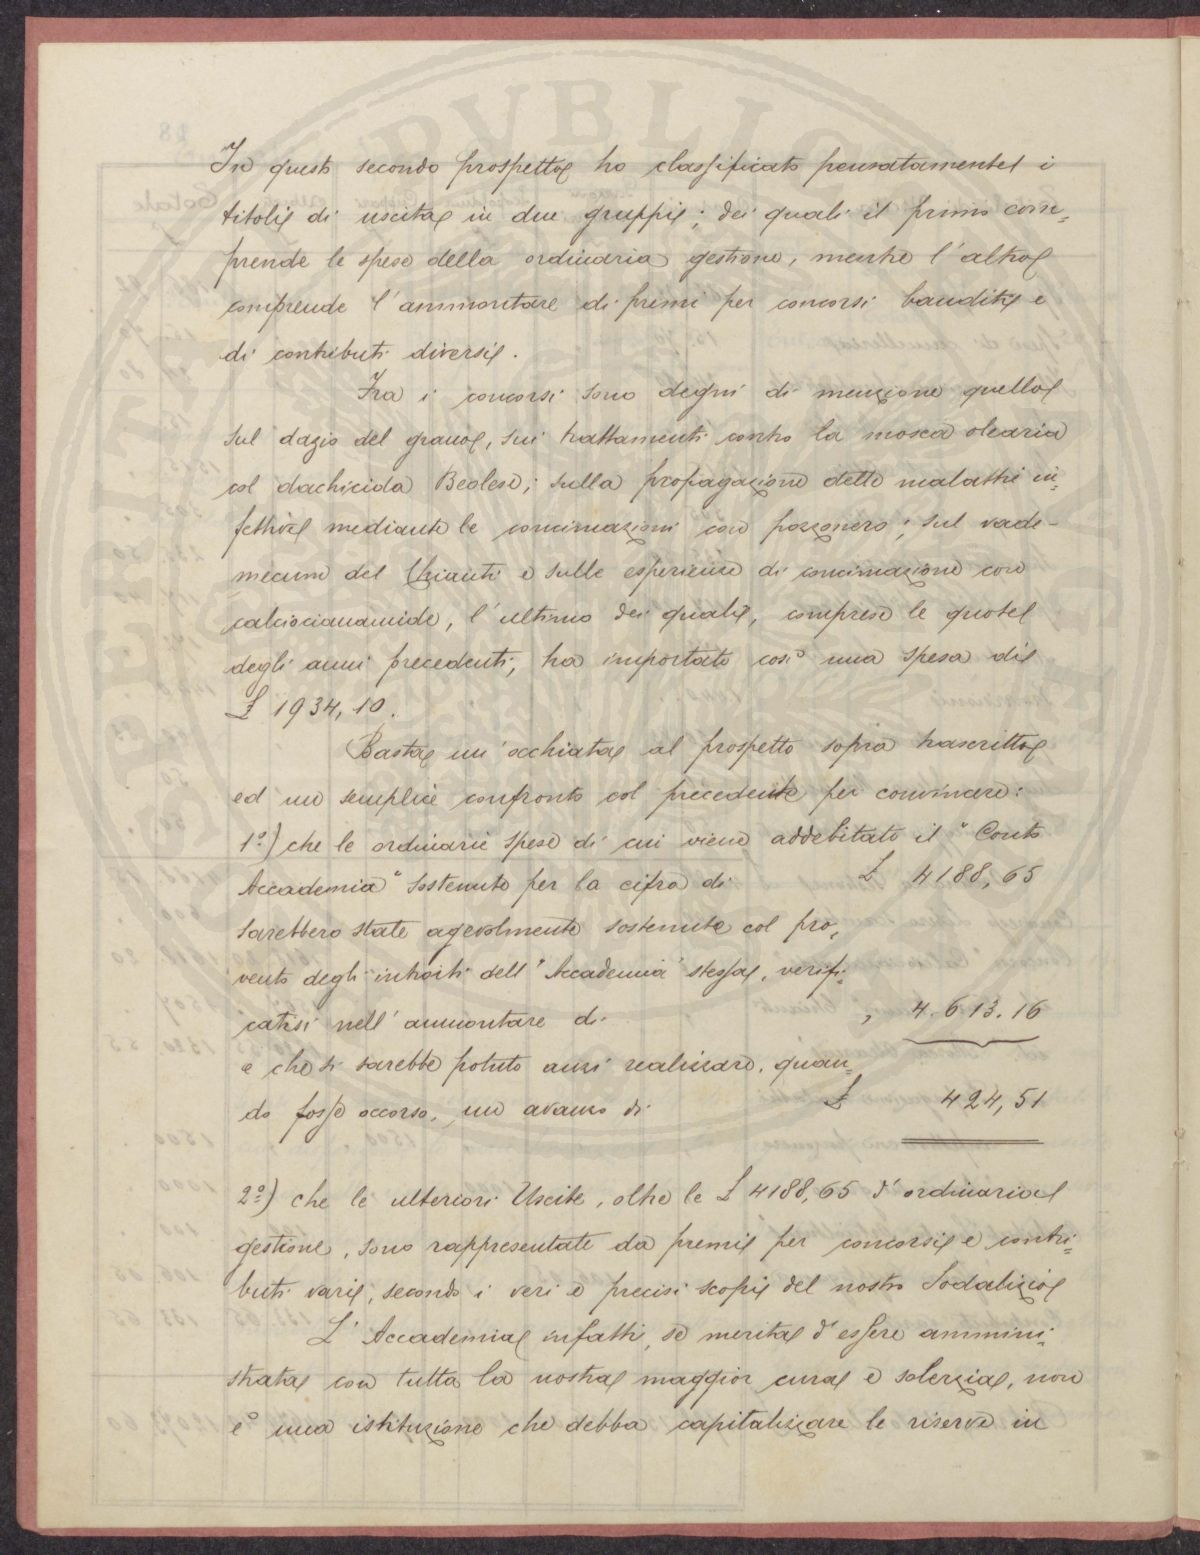 In questo secondo prospetto ho classificato pensatamente i
titoli di uscita in due gruppi; dei quali il primo com-
prende le spese della ordinaria gestione, mentre l'altro
comprende l'ammontare di premi per concorsi banditi e
di contributi diversi.
Fra i concorsi sono degni di menzione quello
sul dazio del grano, sui trattamenti contro la mosca olearia
col dachicida Berlese; sulla propagazione delle malattie in-
fettive mediante le concimazioni con pozzonero; sul vade-
mecum del Chianti e sulle esperienze di concimazione con
calciocianamide, l'ultimo dei quali, comprese le quote
degli anni precedenti, ha importato così una spesa di
£ 1934,10.
Basta un'occhiata al prospetto sopra trascritto
ed un semplice confronto col precedente per convincere:
1º) che le ordinarie spese di cui viene addebitato il "Conto
Accademia" sostenute per la cifra di £ 4188,65
sarebbero state agevolmente sostenute col pro-
vento degli introiti dell'"Accademia" stessa, verifi-
catisi nell'ammontare di „ 4.613.16
e che si sarebbe potuto anzi realizzare, quan-
do fosse occorso, un avanzo di £ 424,51
2º) che le ulteriori Uscite, oltre le £ 4188,65 d'ordinaria
gestione, sono rappresentate da premi per concorsi e contri-
buti vari, secondo i veri e precisi scopi del nostro Sodalizio
L'Accademia infatti, se merita d'essere ammini-
strata con tutta la nostra maggior cura e solerzia, non
è una istituzione che debba capitalizzare le riserve in